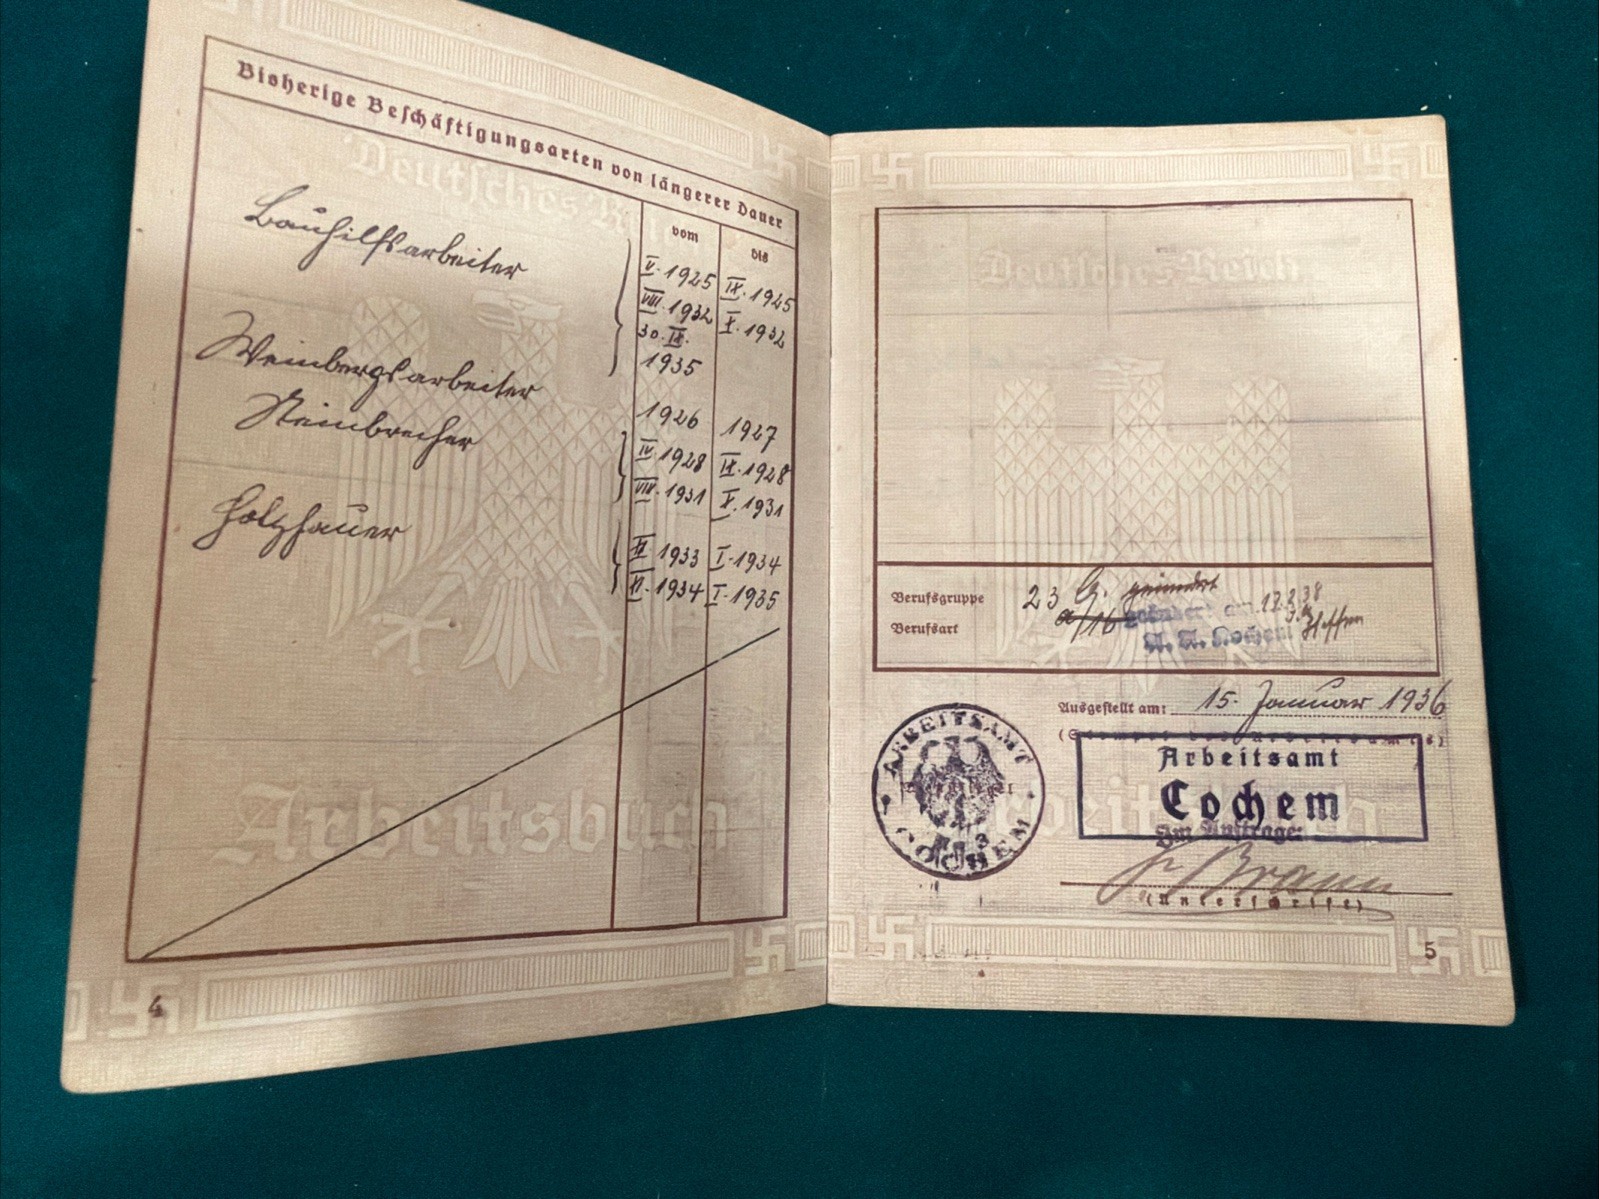 Bisherige Beschäftigungsarten von längerer Dauer
Deutsches Reich
vom bis
Bauhilfsarbeiter
V. 1925 IX. 1925
VIII. 1932 X. 1932
30. IX.
1935
Weinbergsarbeiter 1926 1927
Steinbrecher IV. 1928 IX. 1928
VIII. 1931 X. 1931
Holzhauer XI. 1933 I. 1934
XI. 1934 I. 1935
Arbeitsbuch
4
Deutsches Reich
Berufsgruppe 23 G. geändert
Berufsart a/16 geändert am 17.2.38
A. A. Cochem
Ausgestellt am: 15. Januar 1936
(Stempel des Arbeitsamtes)
ARBEITSAMT
COCHEM
3
Arbeitsamt
Cochem
Im Auftrage:
Arbeitsbuch
Braun
(Unterschrift)
5